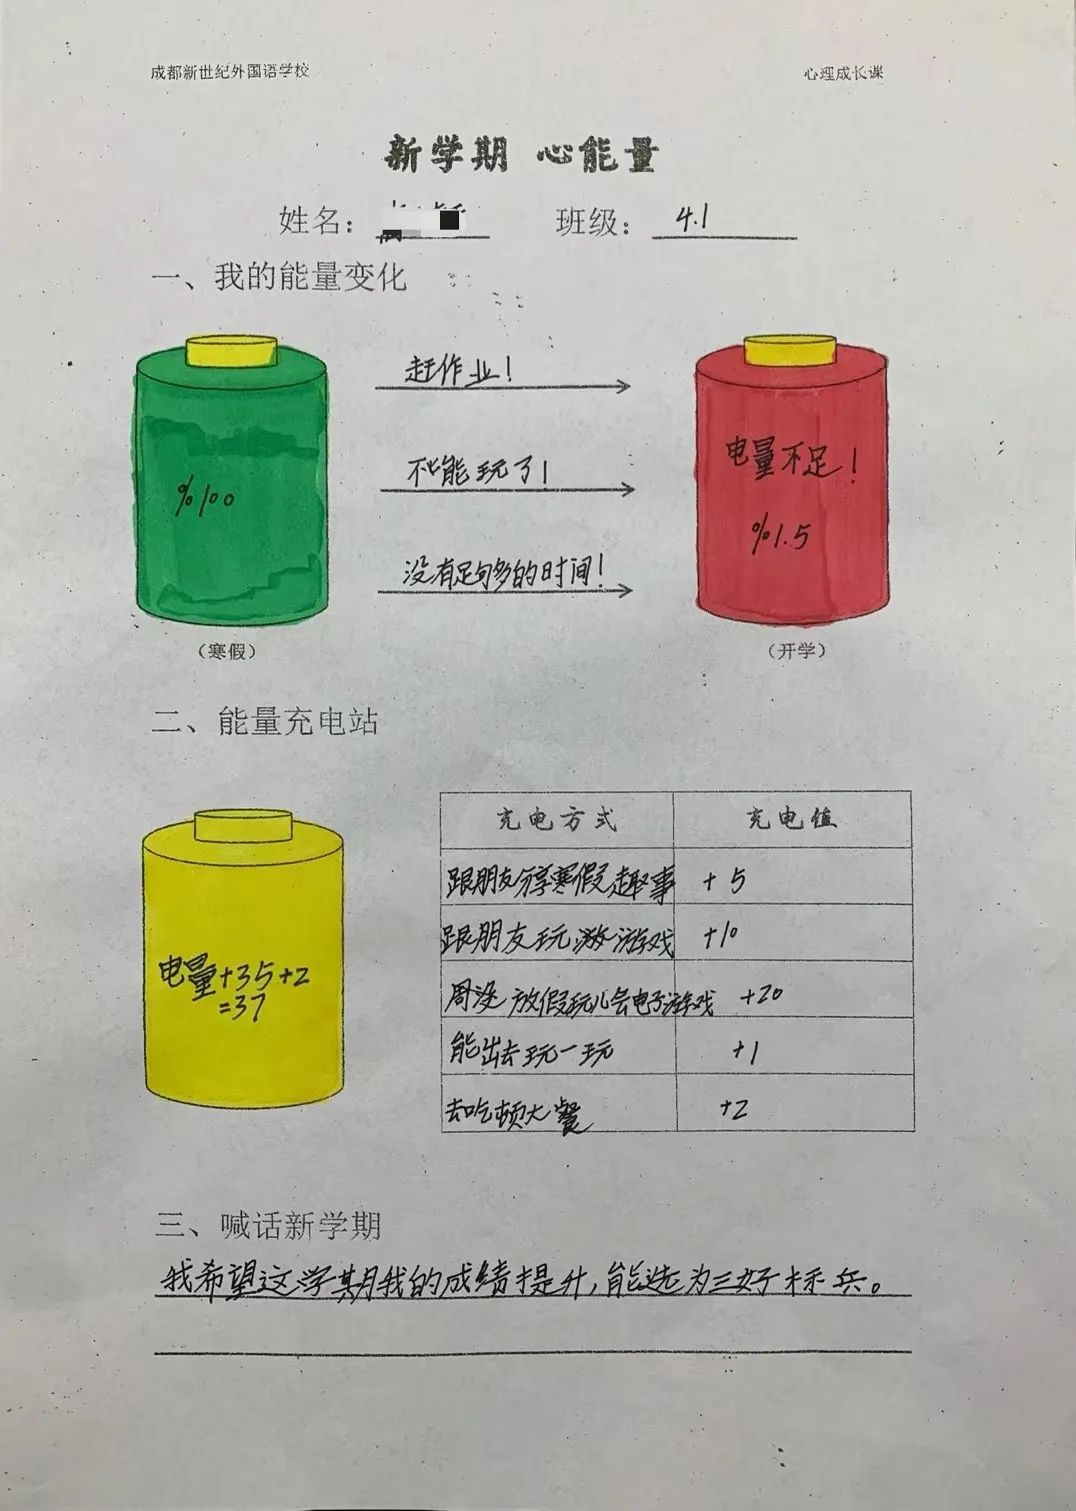 成都新世纪外国语学校 心理成长课
新学期 心能量
姓名： 班级： 4.1
一、我的能量变化
赶作业！
不能玩了！
没有足够多的时间！
%100
电量不足！
%1.5
（寒假） （开学）
二、能量充电站
充电方式 充电值
跟朋友分享寒假趣事 +5
跟朋友玩游戏 +10
周没放假玩儿会电子游戏 +20
能出去玩一玩 +1
去吃顿大餐 +2
电量+35+2
=37
三、喊话新学期
我希望这学期我的成绩提升，能选为三好标兵。